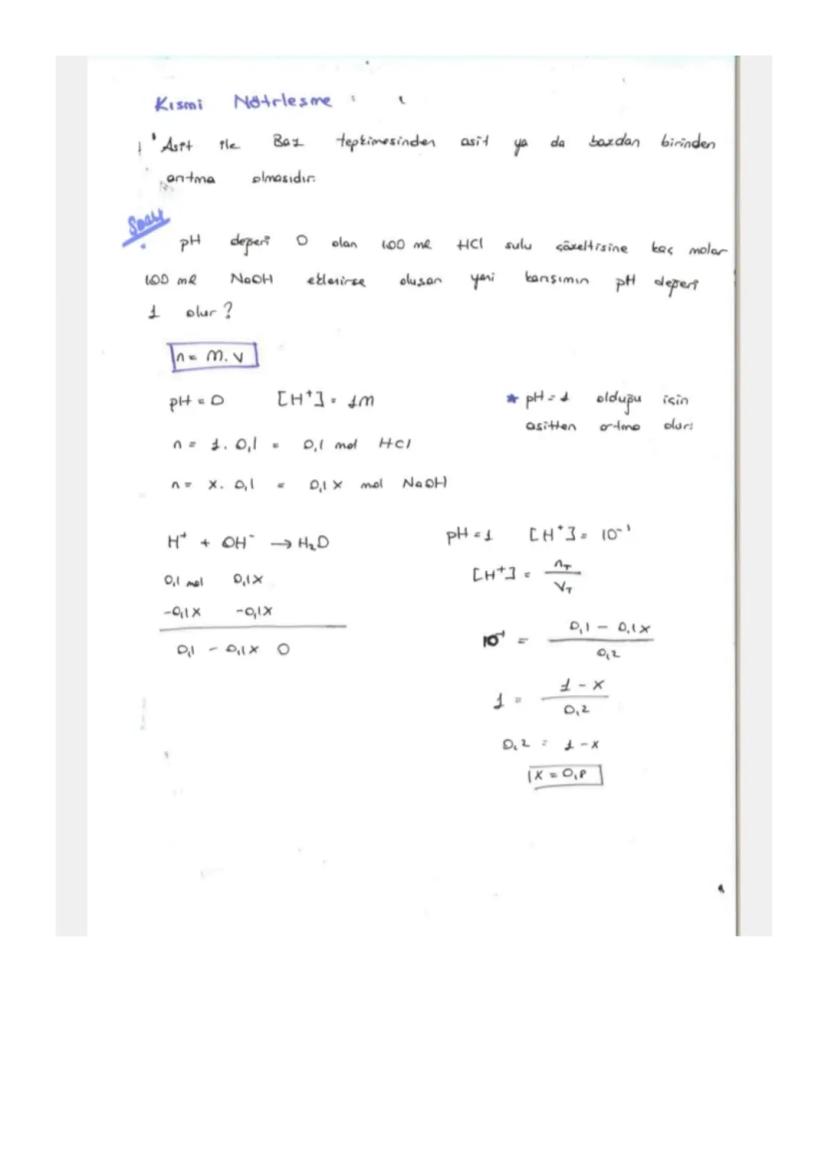 Kısmi Nötrleşme :
Asit ile Baz tepkimesinden asit ya da bazdan birinden
artma olmasıdır.
Soru
pH değeri 0 olan 100 ml HCl sulu çözeltisine kaç molar
100 ml NaOH eklenirse oluşan yeni karışımın pH değeri
1 olur?
n = M.V
pH = 0 [H⁺] = 1M
* pH = 1 olduğu için
asitten artma olur.
n = 1. 0,1 = 0,1 mol HCl
n = X. 0,1 = 0,1 X mol NaOH
H⁺ + OH⁻ → H₂O
0,1 mol 0,1X
-0,1X -0,1X
0,1 - 0,1X 0
pH = 1 [H⁺] = 10⁻¹
[H⁺] = n_T / V_T
10⁻¹ = 0,1 - 0,1X / 0,2
1 = 1 - X / 0,2
0,2 = 1 - X
X = 0,8